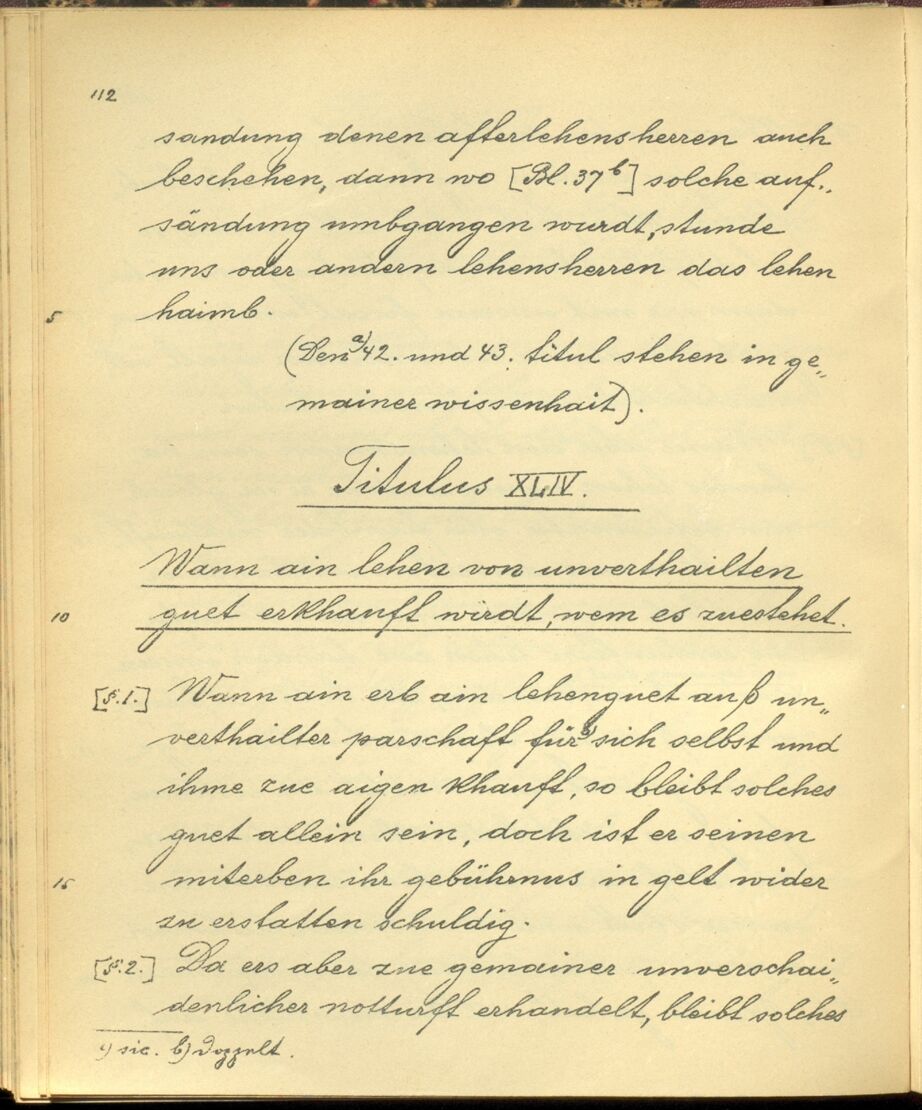 112
sandung denen afterlehensherren auch
beschehen, dann wo [Bl. 37ᵇ] solche auf„
sändung umbgangen wurdt, stunde
uns oder andern lehensherren das lehen
5 haimb.
(Den ᵃ⁾ 42. und 43. titul stehen in ge„
mainer wissenhait).
Titulus XLIV.
Wann ain lehen von unverthailten
10 guet erkhauft wirdt, wem es zuestehet.
[§.1.] Wann ain erb ain lehenguet auß un„
verthailter parschaft für ᵇ⁾ sich selbst und
ihme zue aigen khauft, so bleibt solches
guet allein sein, doch ist er seinen
15 miterben ihr gebührnus in gelt wider
zu erstatten schuldig.
[§.2.] Da ers aber zue gemainer unverschai„
denlicher notturft erhandelt, bleibt solches
a) sic. b) doppelt.